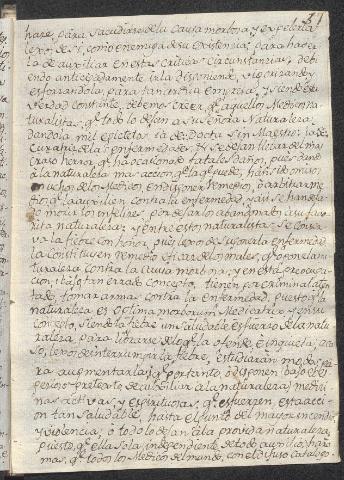 51
hace, para sacudirse de la Causa morbosa, y expelerla
lexos de si, como enemiga de su existencia; para hacer
la de auxiliar en estas criticas circunstancias, de
viendo anticipadamente irla disponiendo, vigorizando y
esforzandola, para tan critica empresa, y siendo esta
verdad constante, debemos creer q.e aquellos Medicos na
turalistas, q.e todo lo dejan a su Señora Naturaleza
dandola mil epictetos, ya de Docta sin Maestro, ya de
Curatriz de las enfermedades, se deslizan del mas
craso horror, q.e ha ocasionado fatales daños, pues dando
a la naturaleza mas accion, q.e la q.e puede, han sido omisos
muchos de los Medicos, en disponer remedios, o arbitrar me
dios, q.e la auxilien contra la enfermedad, y asi se han deja
do morir los infelizes, por dejarlos abandonados a su favo
rita naturaleza; y entre estos naturalistas se conser
va la fiebre con honor, pues lexos de suponerla enfermedad
la Constituyen remedio eficaz de los males, q.e opone la na
turaleza contra la causa morbosa; y en esta preocupa
cion, y bajo tan errado concepto, tienen por criminal aten
tado, tomar armas contra la enfermedad, puesto q.e la
naturaleza es optima morborum Medicatrix, y en su
concepto, siendo la fiebre un saludable esfuerzo de la natu
raleza, para librarse de lo q.e la ofende, e inquieta; aca
so, lexos de interrumpirla la fiebre, estudiaran modos pa
ra augmentarla; q.e por tanto, disponen, bajo este
pretexto de auxiliar a la naturaleza, medici
nas activas, y espirituosas, q.e esfuerzen, esta acci
on tan saludable, hasta el punto del mayor incendio
y violencia; o todo lo dejan a la provida naturaleza,
puesto q.e ella sola, independiente de todo auxilio, hara
mas, q.e todos los Medicos del mundo, con el difuso Catalogo